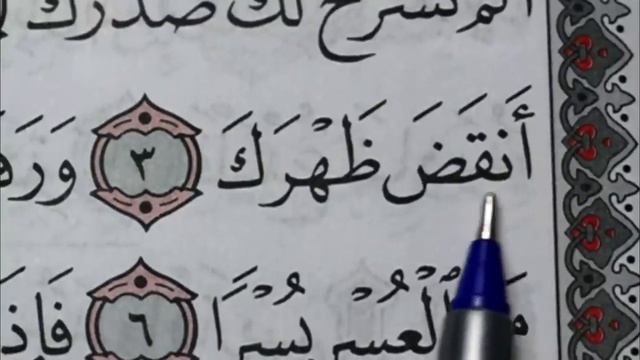 ألم نشرح لك صدرك
أَنقَضَ ظَهْرَكَ ٣ وَرَفَ
الْعُسْرِ يُسْرًا ٦ فَإِذَ